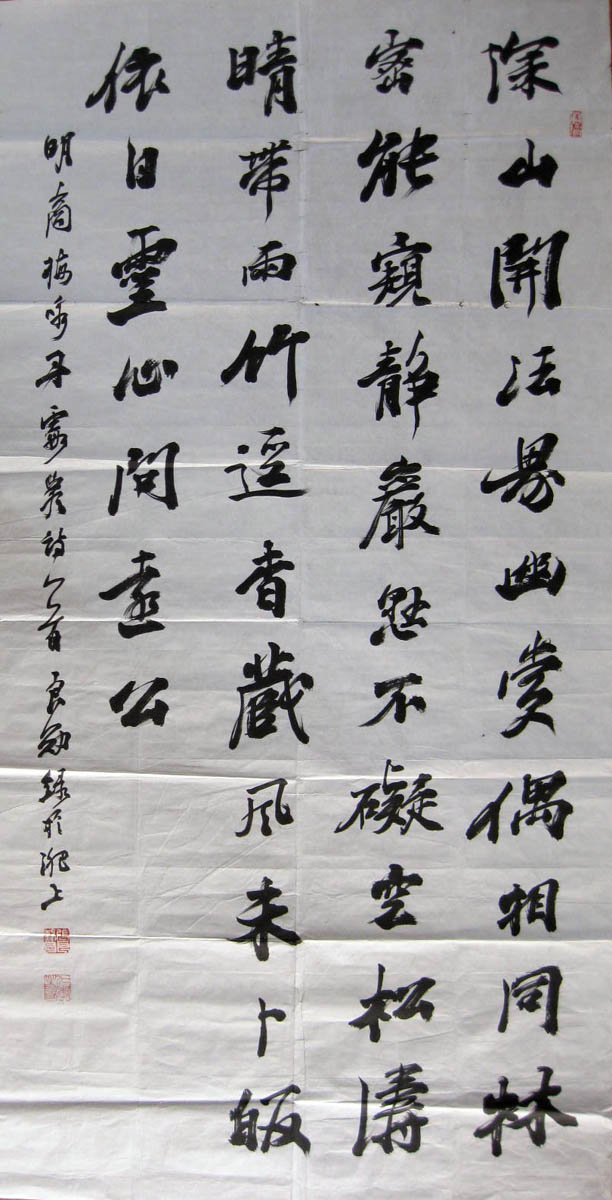 深山開法界幽賞偶相同林
密能窺靜巖危不礙空松濤
晴帶雨竹逕香藏風未卜皈
依日靈心問遠公
明商梅丹霞巖詩一首良勛録於淝上